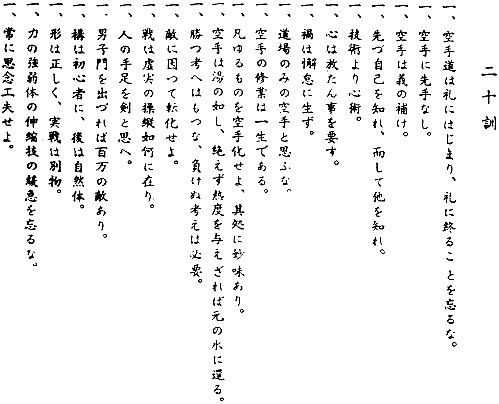 二十訓
一、空手道は礼にはじまり、礼に終ることを忘るな。
一、空手に先手なし。
一、空手は義の補け。
一、先づ自己を知れ、而して他を知れ。
一、技術より心術。
一、心は放たん事を要す。
一、禍は懈怠に生ず。
一、道場のみの空手と思ふな。
一、空手の修業は一生である。
一、凡ゆるものを空手化せよ、其処に妙味あり。
一、空手は湯の如し、絶えず熱度を与えざれば元の水に還る。
一、勝つ考へはもつな、負けぬ考えは必要。
一、敵に因って転化せよ。
一、戦は虚実の操縦如何に在り。
一、人の手足を剣と思へ。
一、男子門を出づれば百万の敵あり。
一、構は初心者に、後は自然体。
一、形は正しく、実戦は別物。
一、力の強弱体の伸縮技の緩急を忘るな。
一、常に思念工夫せよ。